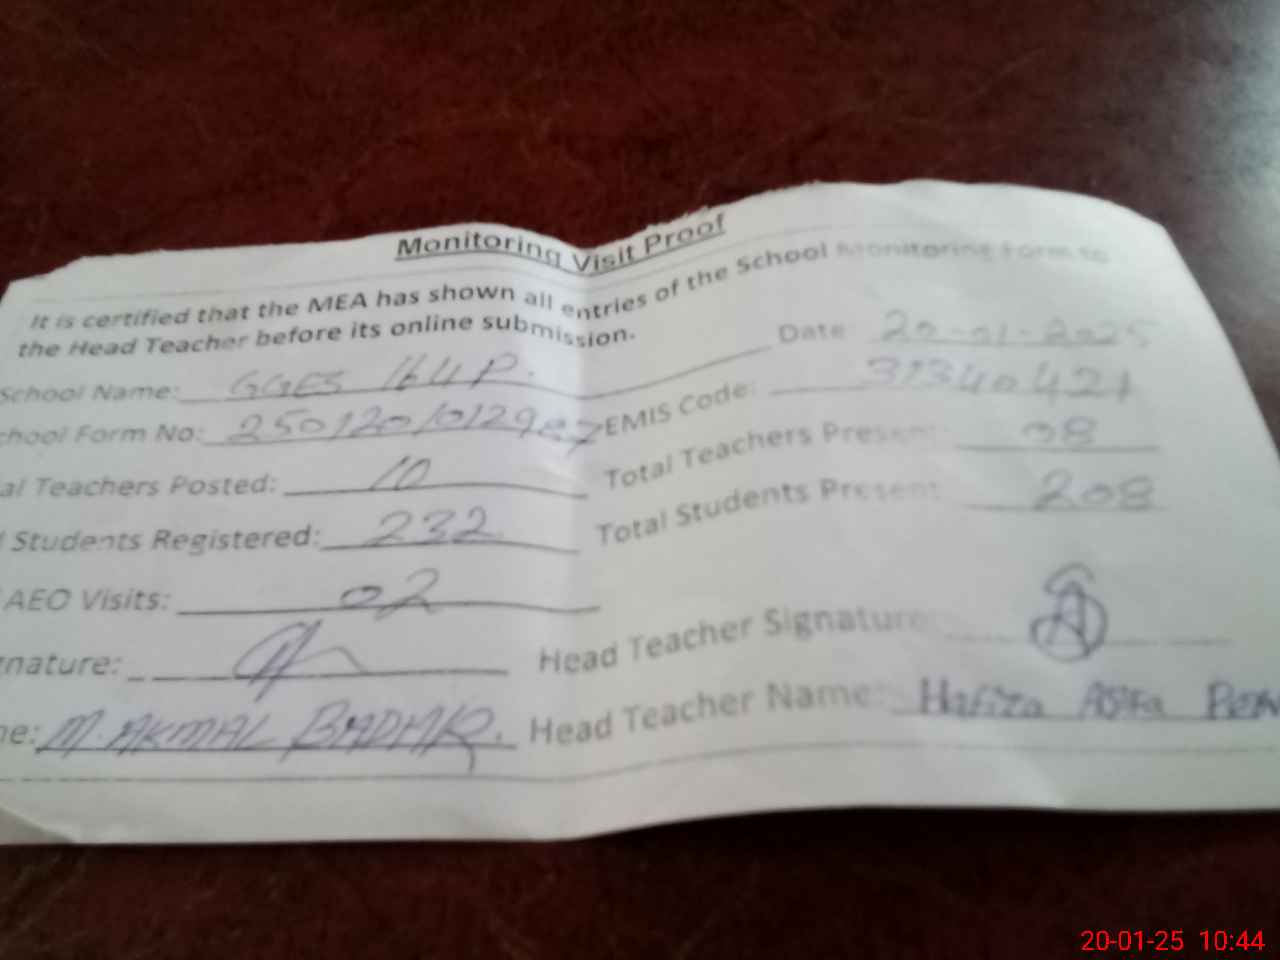 Monitoring Visit Proof
It is certified that the MEA has shown all entries of the School Monitoring Form to
the Head Teacher before its online submission.
Date: 20-01-2025
School Name: GGES 164 P.
EMIS Code: 31340421
chool Form No: 25012010129
al Teachers Posted: 10 Total Teachers Present 08
l Students Registered: 232 Total Students Present 208
AEO Visits: 02
gnature: Head Teacher Signature
ne: M. AKMAL Head Teacher Name: Hafiza Asifa
20-01-25 10:44